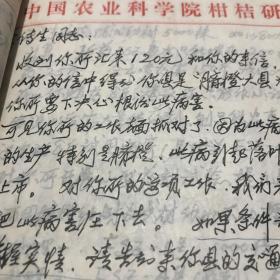 中国农业科学院柑桔研
生同志：
收到你所汇来120元和你的来信，
从你的信中得知你县是"脐橙大县
你所要下决心根治此病害。
可见你所的工作方面抓对了，因为此病
的生产 特别是脐橙，此病引起落叶
上市。对你所的这项工作，我们
把此病害压下去。如果条件
握实情，请告诉来你县的